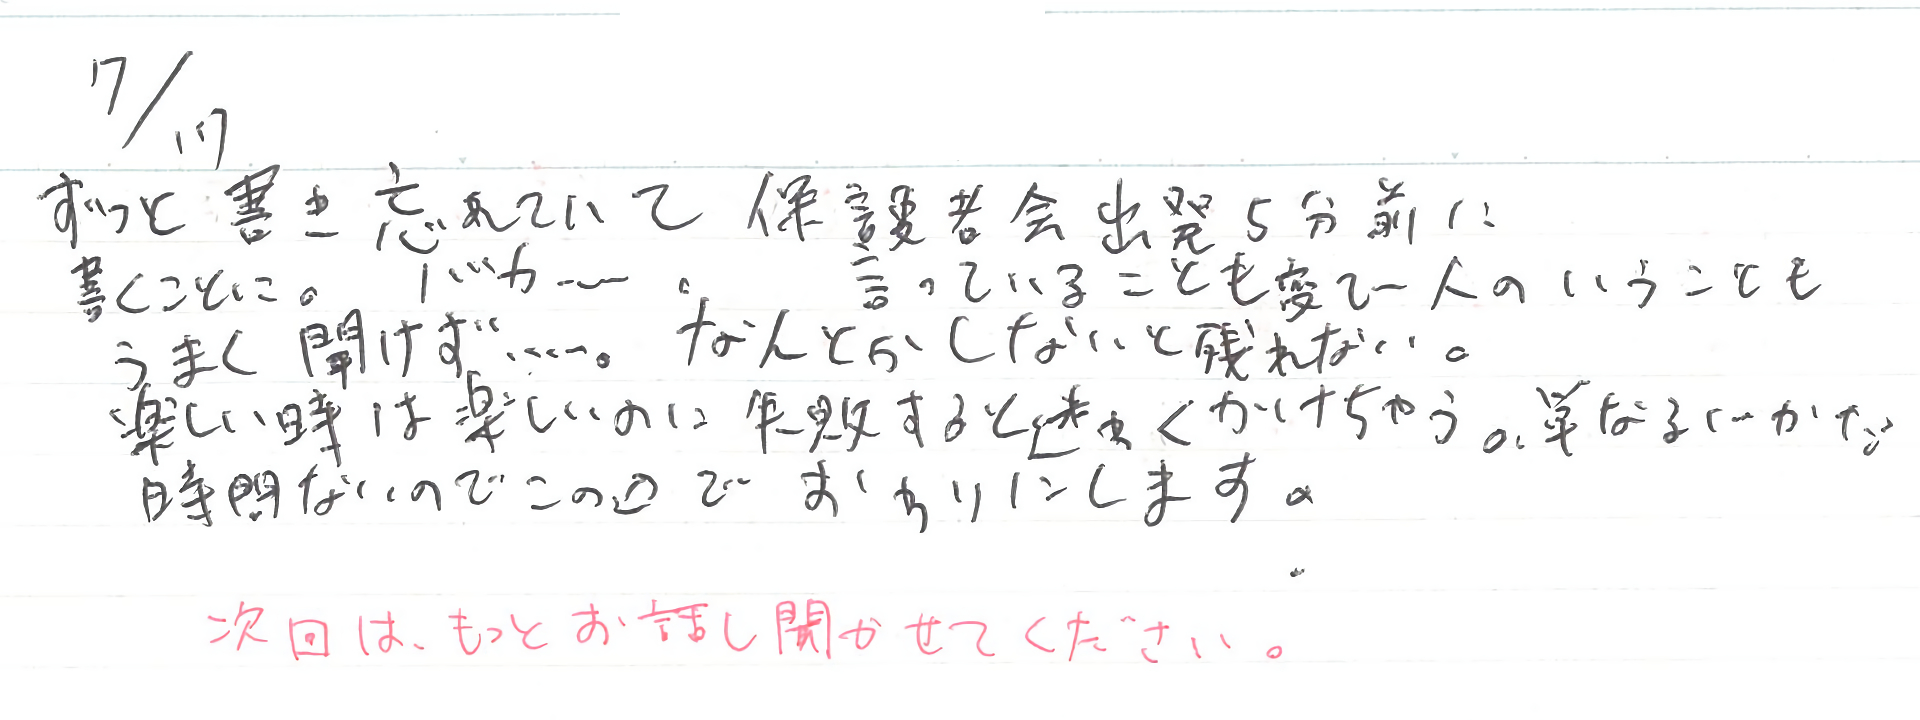 7/17
ずっと書き忘れていて保護者会出発5分前に
書くことに。バカ……。言っていることも変で人のいうことも
うまく聞けず……。なんとかしないと残れない。
楽しい時は楽しいのに失敗すると迷わくかけちゃう。単なる
時間ないのでこの辺でおわりにします。
次回は、もっとお話し聞かせてください。